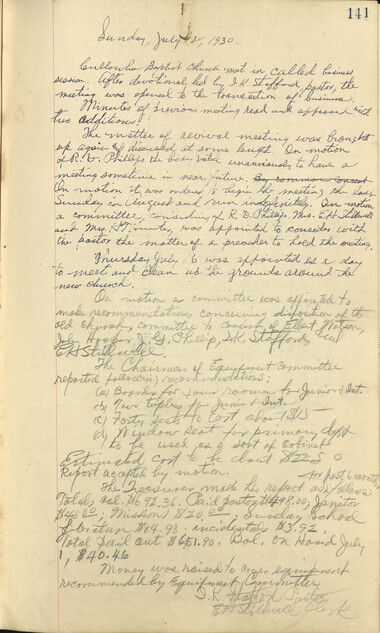 141
Sunday, July 2, 1930.
Cullowhee Baptist Church met in called business
session. After devotional led by I.K. Stafford, pastor, the
meeting was opened to the transaction of business.
Minutes of previous meeting read and approved with
two additions.
The matter of revival meeting was brought
up again & discussed at some length. On motion
of R.D. Phillips the body voted unanimously to have a
meeting sometime in near future. By common consent
On motion it was ordered to begin the meeting the last
Sunday in August and run indefinitely. On motion
a committee, consisting of R.D. Phillips, Mrs. E.H. Stillwell
and Mrs. was appointed to consider with
the pastor the matter of a preacher to hold the meeting.
Thursday July 16 was appointed as a day
to meet and clean up the grounds around the
new church.
On motion a committee was appointed to
make recommendations concerning disposition of the
old church, committee to consist of Elbert Watson,
Phillips, I.K. Stafford, and
E.H. Stillwell.
The Chairman of Equipment Committee
reported following recommendations:
(a) Boards for four rooms for Junior & Int.
(b) Two tables for Junior & Int.
(c) Forty seats to cost about $115
(d) Window seat for primary dept.
to be used as a sort of cabinet
Estimated cost to be about $225.00
Report accepted by motion.
The Treasurer made the report as follows for past 6 months
Totals col. $692.36. Paid pastor $498.00, Janitor
$45.00; Missions $20.00; Sunday School
Literature $84.98; incidentals $3.92
Total paid out $651.90. Bal. on Hand July
1, $40.46
Money was raised to cover equipment
recommended by Equipment Committee
I.K. Stafford Pastor
E.H. Stillwell, Clerk